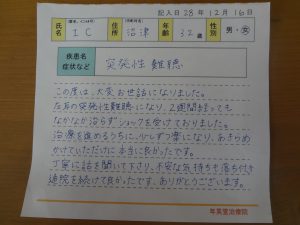 記入日 28年 12月 16日
氏名 (匿名、イニシャル可) I C 住所 沼津 年齢 32歳 性別 男・女
疾患名
症状など
突発性難聴
この度は、大変お世話になりました。
左耳の突発性難聴になり、2週間経っても
なかなか治らずショックを受けておりました。
治療を進めるうちに、少しずつ楽になり、あきらめ
かけていただけに本当に良かったです。
丁寧に話を聞いて下さり、不安な気持ちも落ち付き
通院を続けて良かったです。ありがとうございます。